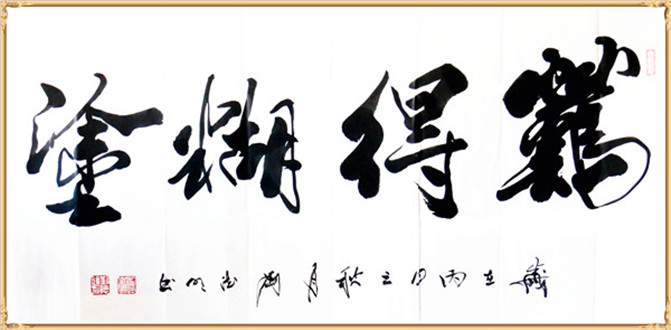 難得糊塗
歲在丙申之秋月